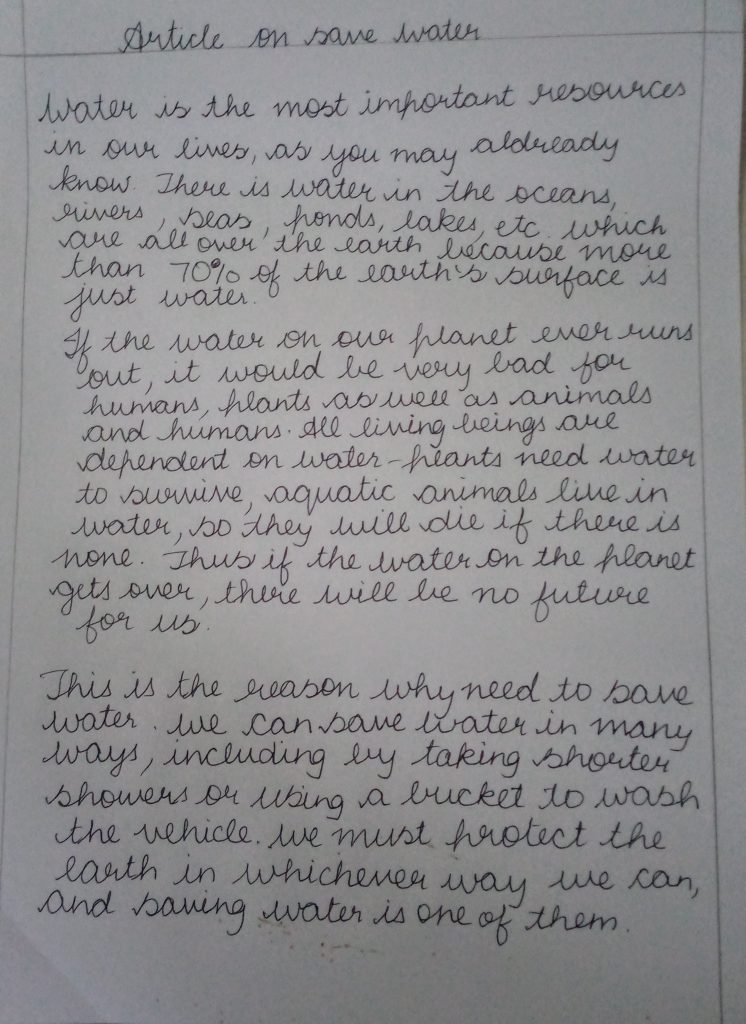 Article on save water
Water is the most important resources
in our lives, as you may aldready
know. There is water in the oceans,
rivers, seas, ponds, lakes, etc. which
are all over the earth because more
than 70% of the earth's surface is
just water.
If the water on our planet ever runs
out, it would be very bad for
humans, plants as well as animals
and humans. All living beings are
dependent on water-plants need water
to survive, aquatic animals live in
water, so they will die if there is
none. Thus if the water on the planet
gets over, there will be no future
for us.
This is the reason why need to save
water. We can save water in many
ways, including by taking shorter
showers or using a bucket to wash
the vehicle. We must protect the
earth in whichever way we can,
and saving water is one of them.